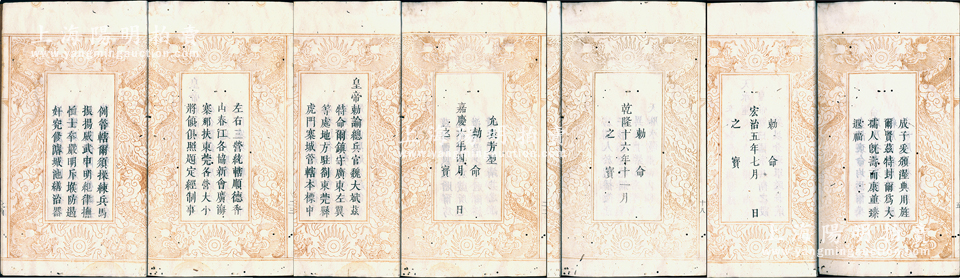 成子爰頒渥典用旌
爾賢茲特封爾爲大
孺人既壽而康
遐福
勅命
宏治五年七月 日
之寶
勅命
乾隆十六年十一月
之寶
芳型
勅命
嘉慶六年四月 日
之寶
皇帝勅諭總兵官魏大斌茲
特命爾鎮守廣東左翼
等處地方駐劄東莞縣
虎門寨城管轄本標中
左右三營統轄順德香
山春江各協新會廣海
寨那扶東莞各營大小
將領俱照題定經制事
例管轄爾須操練兵馬
振揚威武申明紀律撫
恤士卒嚴明斥堠防遏
奸宄修濬城池繕治器
十八
上海陽明拍賣
www.yangmingauction.com